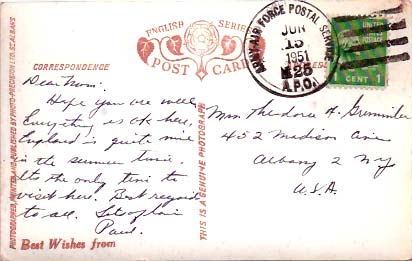 ENGLISH SERIES
POST CARD
CORRESPONDENCE
Dear Mom:
Hope you are well
Everything is ok here.
England is quite nice
in the summer time.
Its the only time to
visit here. Best regards
to all. Lots of love
Paul.
Best Wishes from
PHOTOGRAPHED, PRINTED AND PUBLISHED BY PHOTO-PRECISION LTD. ST. ALBANS
THIS IS A GENUINE PHOTOGRAPH
ARMY-AIR FORCE POSTAL SERVICE
JUN
15
1951
25
A.P.O.
UNITED STATES
CENT 1
Mrs. Theodora A.
452 Madison Ave
Albany 2 N.Y.
U.S.A.